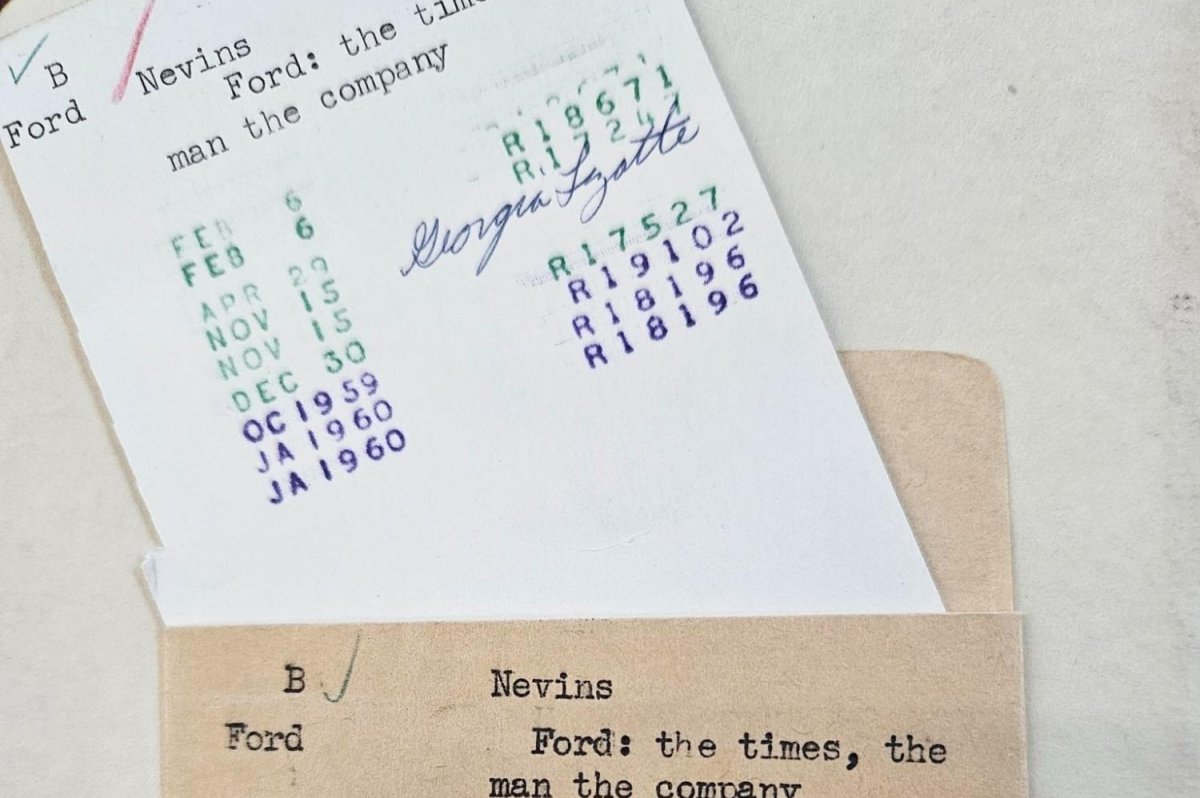 B Nevins
Ford Ford: the
man the company
R18671
R1724
Georgia Lizotte
FEB 6
FEB 6
APR 29
NOV 15 R17527
NOV 15 R19102
DEC 30 R18196
OC 1959 R18196
JA 1960
JA 1960
B Nevins
Ford Ford: the times, the
man the company